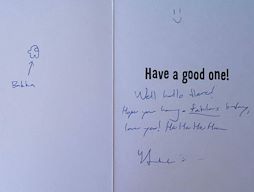 Have a good one!
Well hello there!
Hope your having a fabulous birthday,
love you! Ha Ha Ha Ha